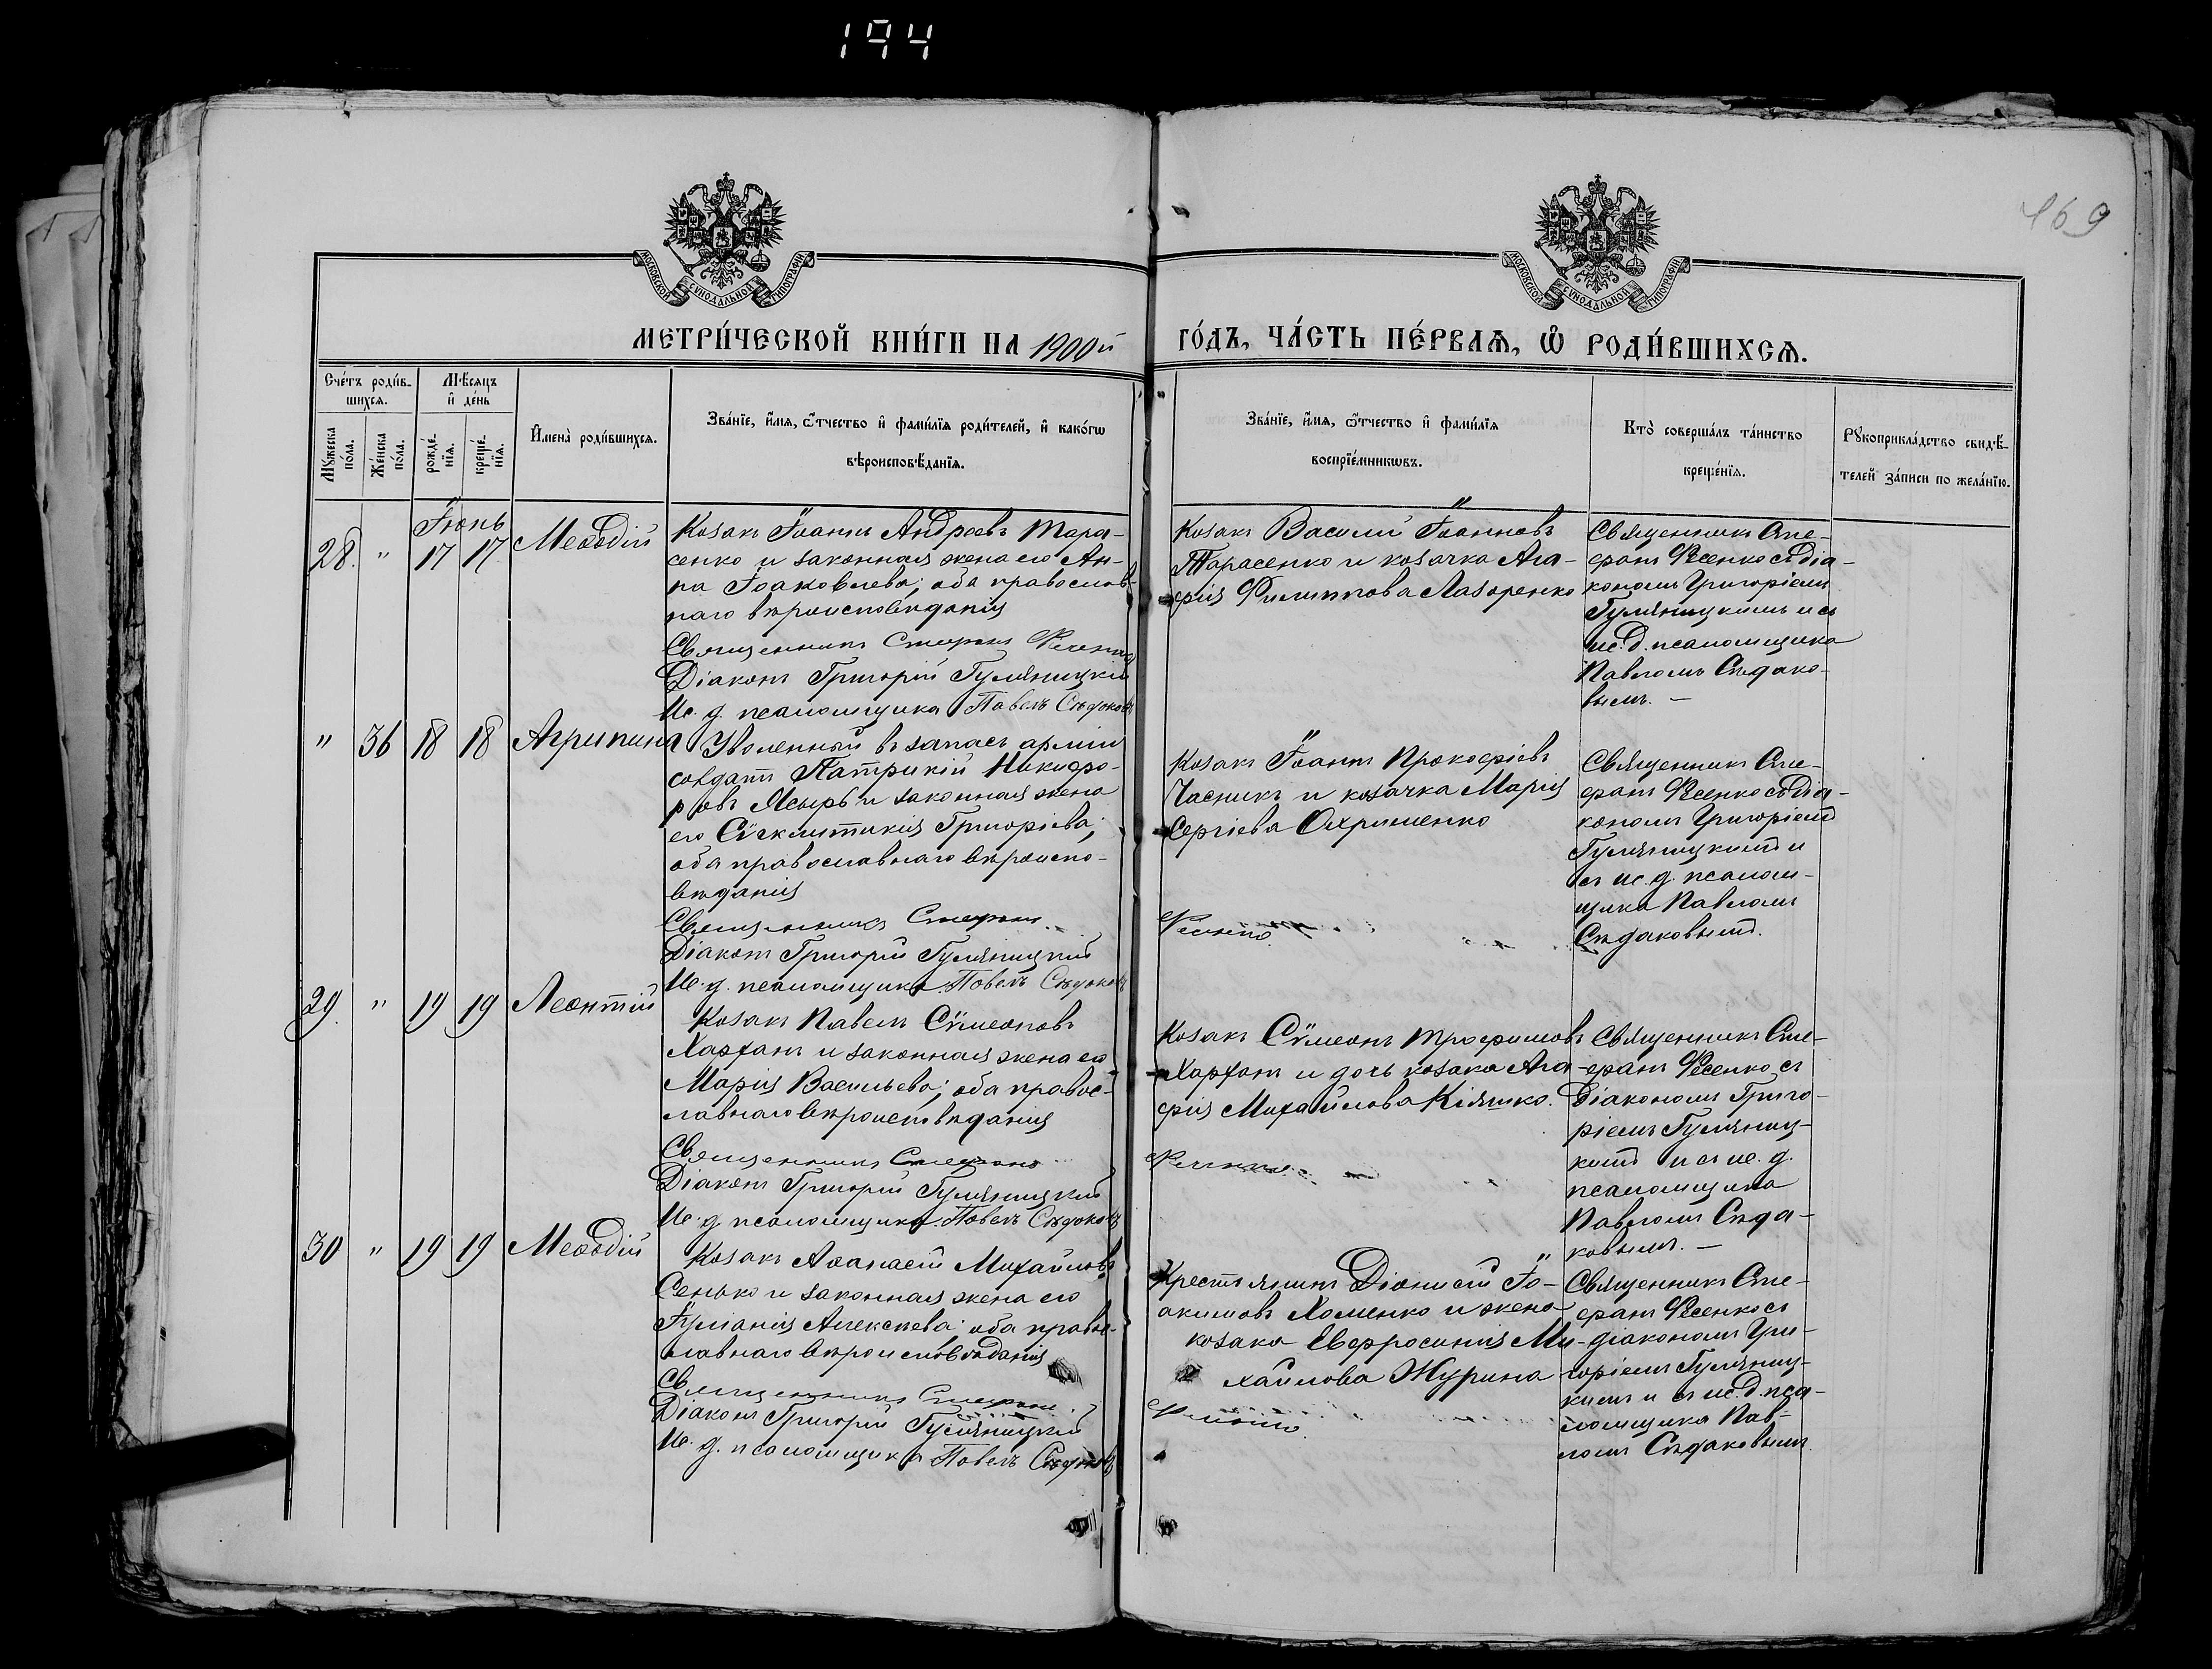 194
169
МОСКОВСКОЙ СУНОДАЛЬНОЙ ТИПОГРАФІИ
МОСКОВСКОЙ СУНОДАЛЬНОЙ ТИПОГРАФІИ
МЕТРИ́ЧЕСКОЙ КНИ́ГИ НА 1900й ГО́ДЪ, ЧА́СТЬ ПЕ́РВАѦ, Ѡ҆ РОДИ́ВШИХСѦ.
Сче́тъ роди́в-
шихсѧ.
Мѣ́сѧцъ
и҆ де́нь
Мꙋ́жеска
по́ла.
Же́нска
по́ла.
рожде́-
нїѧ.
креще́-
нїѧ.
И҆мена̀ роди́вшихсѧ.
Зва́нїе, и҆́мѧ, ѻ҆́тчество и҆ фами́лїѧ роди́телей, и҆ како́гѡ
вѣроисповѣ́данїѧ.
Зва́нїе, и҆́мѧ, ѻ҆́тчество и҆ фами́лїѧ
воспрїе́мникѡвъ.
Кто̀ соверша́лъ та́инство
креще́нїѧ.
Рꙋкоприкла́дство свидѣ́-
телей за́писи по жела́нїю.
Іюнь
28. " 17 17 Меѳодій
Козакъ Іоаннъ Андреевъ Тара-
сенко и законная жена его Ан-
на Іоаковлева; оба православ-
наго вѣроисповѣданія
Священникъ Стефанъ Фесенко
Діаконъ Григорій Гуляницкій
Ис. д. псаломщика Павелъ Сѣдаковъ
Козакъ Василій Іоанновъ
Тарасенко и козачка Ага-
фія Филиппова Лазаренко
Священникъ Сте-
фанъ Фесенко съ діа-
кономъ Григоріемъ
Гуляницкимъ и съ
ис. д. псаломщика
Павломъ Сѣдако-
вымъ. —
" 36 18 18 Агрипина
Уволенный въ запасъ арміи
солдатъ Патрикій Никифо-
ровъ Ясырь и законная жена
его Сѵнклитикія Григоріева;
оба православнаго вѣроиспо-
вѣданія
Священникъ Стефанъ Фесенко
Діаконъ Григорій Гуляницкій
Ис. д. псаломщика Павелъ Сѣдаковъ
Козакъ Іоаннъ Прокофіевъ
Часникъ и козачка Марія
Сергіева Охрименко
Священникъ Сте-
фанъ Фесенко съ діа-
кономъ Григоріемъ
Гуляницкимъ и
съ ис. д. псалом-
щика Павломъ
Сѣдаковымъ.
29. " 19 19 Леонтій
Козакъ Павелъ Сѵмеоновъ
Харханъ и законная жена его
Марія Васильева; оба правос-
лавнаго вѣроисповѣданія
Священникъ Стефанъ Фесенко
Діаконъ Григорій Гуляницкій
Ис. д. псаломщика Павелъ Сѣдаковъ
Козакъ Сѵмеонъ Трофимовъ
Харханъ и дочь козака Ага-
фія Михайлова Кіяшко.
Священникъ Сте-
фанъ Фесенко съ
діакономъ Григо-
ріемъ Гуляниц-
кимъ и съ ис. д.
псаломщика
Павломъ Сѣда-
ковымъ. —
30 " 19 19 Меѳодій
Козакъ Аѳанасій Михайловъ
Сенько и законная жена его
Іуліанія Алексѣева; оба право-
славнаго вѣроисповѣданія
Священникъ Стефанъ Фесенко
Діаконъ Григорій Гуляницкій
Ис. д. псаломщика Павелъ Сѣдаковъ
Крестьянинъ Діонисій Іо-
акимовъ Хоменко и жена
козака Евфросинія Ми-
хайлова Журина
Священникъ Сте-
фанъ Фесенко съ
діакономъ Гри-
горіемъ Гуляниц-
кимъ и съ ис. д. пса-
ломщика Пав-
ломъ Сѣдаковымъ.